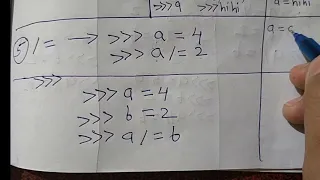 >>> a >>> hihi a = hihi
5 /= → >>> a = 4
>>> a /= 2
a = a
>>>
>>> a = 4
>>> b = 2
>>> a /= b